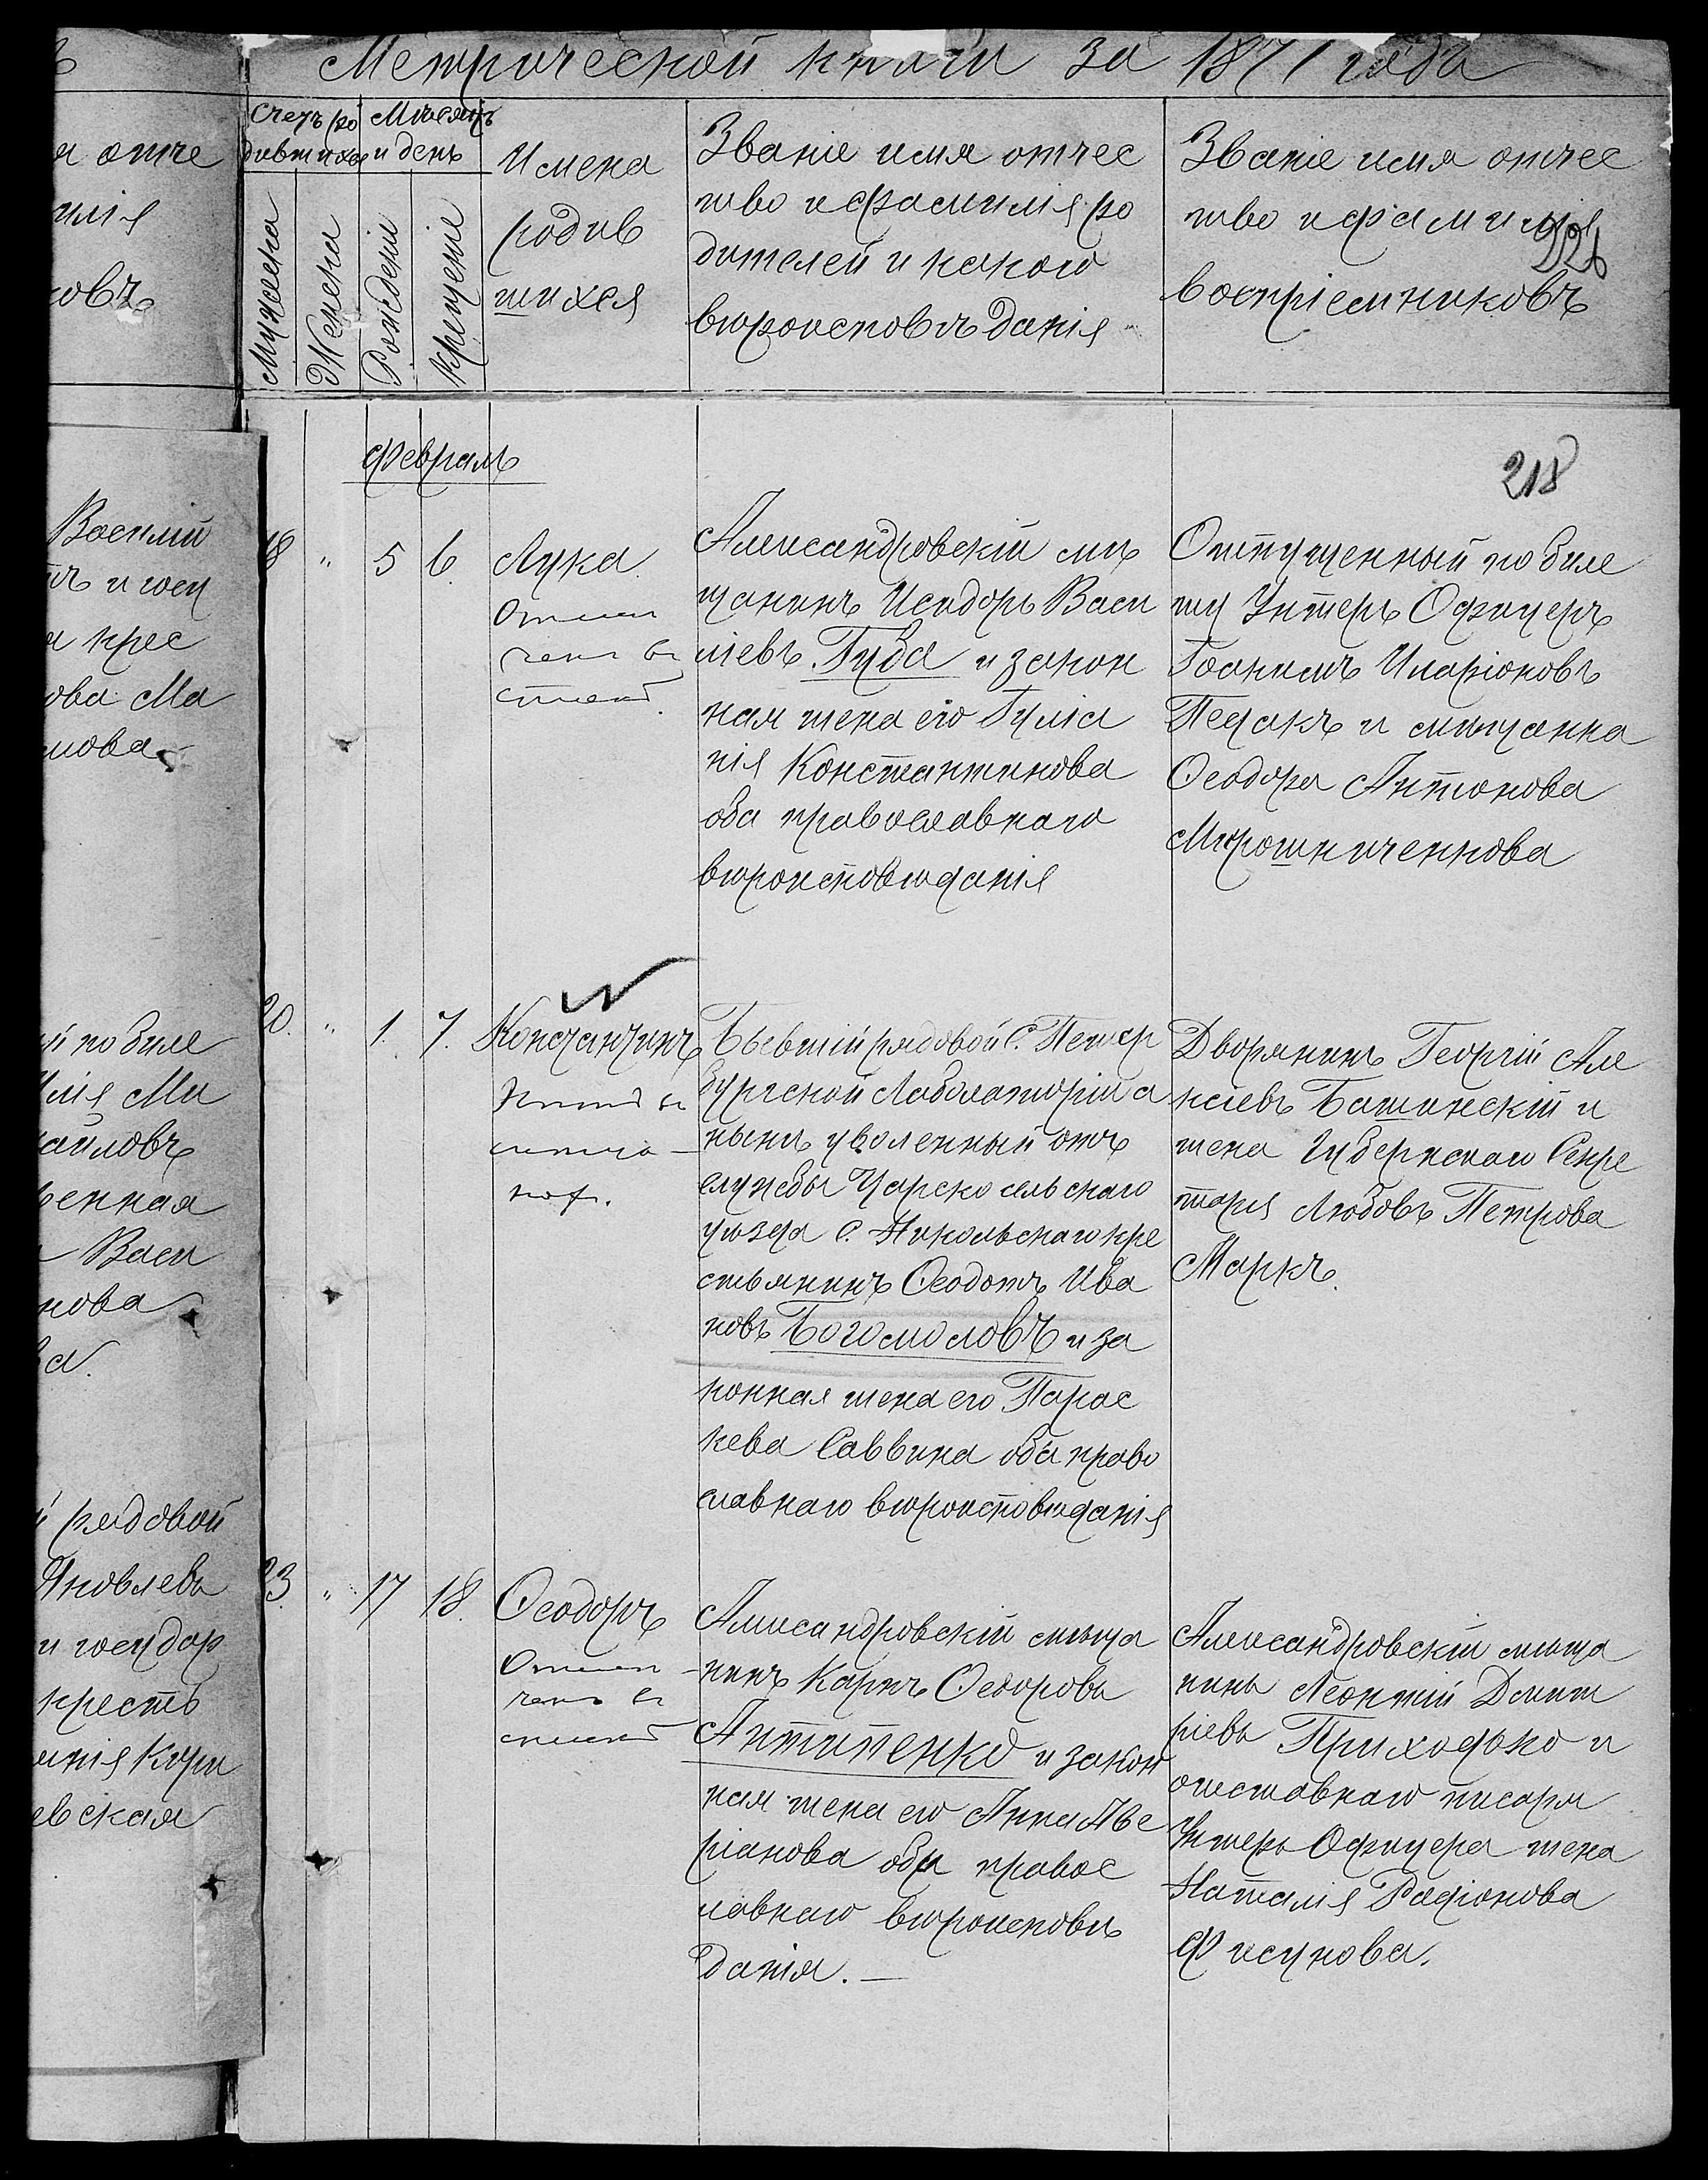 Метрической книги за 1871 года
Счетъ ро
дившихся
Мѣсяцъ
и день
Мужеска
Женска
Рожденіе
Крещеніе
Имена
родив
шихся
Званіе имя отчес
тво и фамилія ро
дителей и какого
вѣроисповѣданія
Званіе имя отчес
тво и фамилія
воспріемниковъ
226
я отче
илія
ковъ
Февраль
218
18 " 5 6. Лука
Александровскій мѣ
щанинъ Исидоръ Васи
ліевъ Губа и закон
ная жена его Іуліа
нія Константинова
оба православнаго
вѣроисповѣданія
Отпущенный по биле
ту Унтеръ Офицеръ
Іоакимъ Иларіоновъ
Пецакъ и мѣщанка
Ѳеодора Антонова
Мирошниченкова
20. " 1. 7. Константинъ
Бывшій рядовой С. Петер
бургской Лаболаторіи а
нынѣ уволенный отъ
службы Царскосельскаго
уѣзда С. Никольскаго кре
стьянинъ Ѳеодотъ Ива
новъ Богомоловъ и за
конная жена его Парас
кева Саввина оба право
славнаго вѣроисповѣданія
Дворянинъ Георгій Але
ксіевъ Башинскій и
жена Губернскаго Секре
таря Любовь Петрова
Маркъ.
23. " 17 18. Ѳеодоръ
Александровскій мѣща
нинъ Карпъ Ѳедоровъ
Антипенко и закон
ная жена его Анна Аве
ріанова оба правос
лавнаго вѣроисповѣ
данія.
Александровскій мѣща
нинъ Леонтій Димит
ріевъ Приходько и
отставнаго писаря
Унтеръ Офицера жена
Наталія Радіонова
Фисунова.
Василій
ъ и госу
я крес
ова Ма
мова
й по биле
илія Ми
айловъ
венная
Васи
нова
ва.
й рядовой
Яковлевъ
и государ
кресть
анія Кори
евская